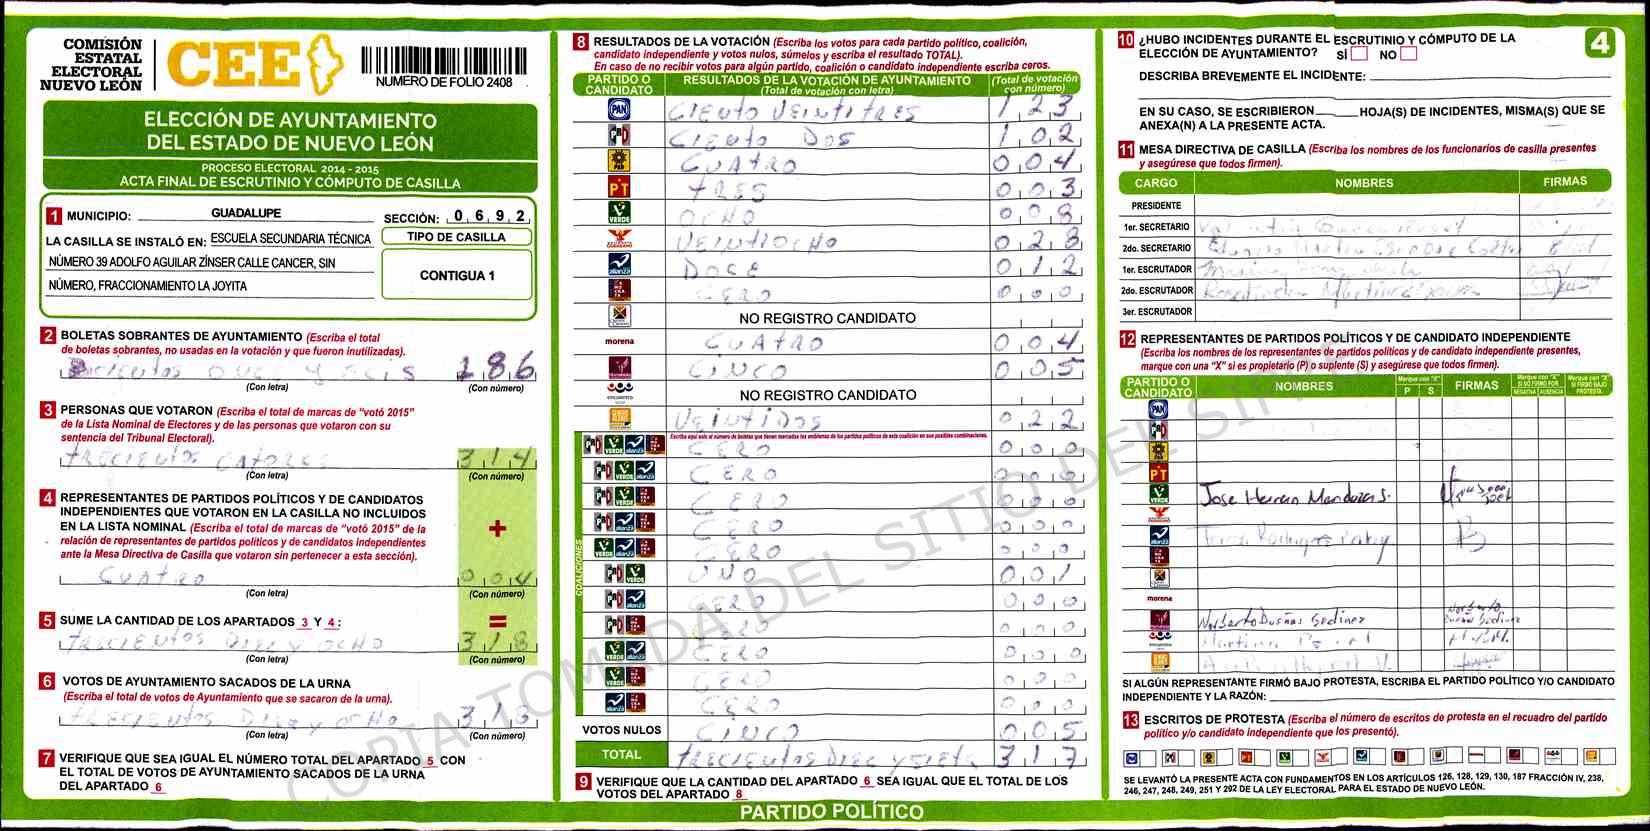 COMISIÓN
ESTATAL
ELECTORAL
NUEVO LEÓN
CEE
NUMERO DE FOLIO 2408
ELECCIÓN DE AYUNTAMIENTO
DEL ESTADO DE NUEVO LEÓN
PROCESO ELECTORAL 2014 - 2015
ACTA FINAL DE ESCRUTINIO Y CÓMPUTO DE CASILLA
1 MUNICIPIO: GUADALUPE SECCIÓN: 0692
LA CASILLA SE INSTALÓ EN: ESCUELA SECUNDARIA TÉCNICA
NÚMERO 39 ADOLFO AGUILAR ZÍNSER CALLE CANCER, SIN
NÚMERO, FRACCIONAMIENTO LA JOYITA
TIPO DE CASILLA
CONTIGUA 1
2 BOLETAS SOBRANTES DE AYUNTAMIENTO (Escriba el total
de boletas sobrantes, no usadas en la votación y que fueron inutilizadas).
186
(Con letra) (Con número)
3 PERSONAS QUE VOTARON (Escriba el total de marcas de "votó 2015"
de la Lista Nominal de Electores y de las personas que votaron con su
sentencia del Tribunal Electoral).
trecientos catorce 314
(Con letra) (Con número)
4 REPRESENTANTES DE PARTIDOS POLÍTICOS Y DE CANDIDATOS
INDEPENDIENTES QUE VOTARON EN LA CASILLA NO INCLUIDOS
EN LA LISTA NOMINAL (Escriba el total de marcas de "votó 2015" de la
relación de representantes de partidos políticos y de candidatos independientes
ante la Mesa Directiva de Casilla que votaron sin pertenecer a esta sección).
+
cuatro 004
(Con letra) (Con número)
5 SUME LA CANTIDAD DE LOS APARTADOS 3 Y 4: =
trecientos diez y ocho 318
(Con letra) (Con número)
6 VOTOS DE AYUNTAMIENTO SACADOS DE LA URNA
(Escriba el total de votos de Ayuntamiento que se sacaron de la urna).
trecientos diez y ocho 318
(Con letra) (Con número)
7 VERIFIQUE QUE SEA IGUAL EL NÚMERO TOTAL DEL APARTADO 5 CON
EL TOTAL DE VOTOS DE AYUNTAMIENTO SACADOS DE LA URNA
DEL APARTADO 6
8 RESULTADOS DE LA VOTACIÓN (Escriba los votos para cada partido político, coalición,
candidato independiente y votos nulos, súmelos y escriba el resultado TOTAL).
En caso de no recibir votos para algún partido, coalición o candidato independiente escriba ceros.
PARTIDO O CANDIDATO RESULTADOS DE LA VOTACIÓN DE AYUNTAMIENTO (Total de votación con letra) (Total de votación con número)
PAN CIENTO VEINTITRES 123
PRI CIENTO DOS 102
PRD CUATRO 004
PT TRES 003
VERDE OCHO 008
VEINTIOCHO 028
alianza DOCE 012
CERO 000
NO REGISTRO CANDIDATO
morena CUATRO 004
CINCO 005
encuentro NO REGISTRO CANDIDATO
VEINTIDOS 022
COALICIONES
Escriba aquí solo el número de boletas que tienen marcados los emblemas de los partidos políticos de esta coalición en sus posibles combinaciones.
CERO 000
CERO 000
CERO 000
CERO 000
CERO 000
UNO 001
CERO 000
CERO 000
CERO 000
CERO 000
CERO 000
VOTOS NULOS CINCO 005
TOTAL trecientos diez y siete 317
9 VERIFIQUE QUE LA CANTIDAD DEL APARTADO 6 SEA IGUAL QUE EL TOTAL DE LOS
VOTOS DEL APARTADO 8
PARTIDO POLÍTICO
4
10 ¿HUBO INCIDENTES DURANTE EL ESCRUTINIO Y CÓMPUTO DE LA
ELECCIÓN DE AYUNTAMIENTO? SÍ NO
DESCRIBA BREVEMENTE EL INCIDENTE:
EN SU CASO, SE ESCRIBIERON HOJA(S) DE INCIDENTES, MISMA(S) QUE SE
ANEXA(N) A LA PRESENTE ACTA.
11 MESA DIRECTIVA DE CASILLA (Escriba los nombres de los funcionarios de casilla presentes
y asegúrese que todos firmen).
CARGO NOMBRES FIRMAS
PRESIDENTE
1er. SECRETARIO
2do. SECRETARIO
1er. ESCRUTADOR
2do. ESCRUTADOR
3er. ESCRUTADOR
12 REPRESENTANTES DE PARTIDOS POLÍTICOS Y DE CANDIDATO INDEPENDIENTE
(Escriba los nombres de los representantes de partidos políticos y de candidato independiente presentes,
marque con una "X" si es propietario (P) o suplente (S) y asegúrese que todos firmen).
PARTIDO O CANDIDATO NOMBRES Marque con "X" P S FIRMAS Marque con "X" SI NO FIRMÓ POR NEGATIVA AUSENCIA Marque con "X" SI FIRMÓ BAJO PROTESTA
PAN
PRI
PRD
PT
VERDE Jose Hernan Mendoza S.
alianza
morena
Norberto Dueñas Godinez
encuentro
SI ALGÚN REPRESENTANTE FIRMÓ BAJO PROTESTA, ESCRIBA EL PARTIDO POLÍTICO Y/O CANDIDATO
INDEPENDIENTE Y LA RAZÓN:
13 ESCRITOS DE PROTESTA (Escriba el número de escritos de protesta en el recuadro del partido
político y/o candidato independiente que los presentó).
SE LEVANTÓ LA PRESENTE ACTA CON FUNDAMENTOS EN LOS ARTÍCULOS 126, 128, 129, 130, 187 FRACCIÓN IV, 238,
246, 247, 248, 249, 251 Y 292 DE LA LEY ELECTORAL PARA EL ESTADO DE NUEVO LEÓN.
COPIA TOMADA DEL SITIO DEL SIPRE